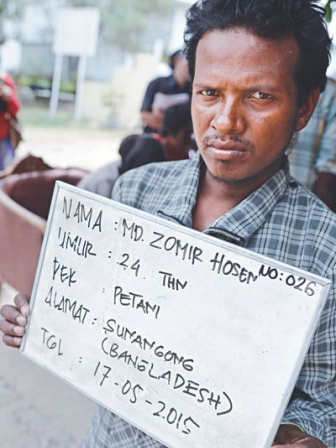 NAMA : MD. ZOMIR HOSEN NO: 026
UMUR : 24 THN
PEK : PETANI
ALAMAT : SUNANGONG
(BANGLADESH)
TGL : 17-05-2015